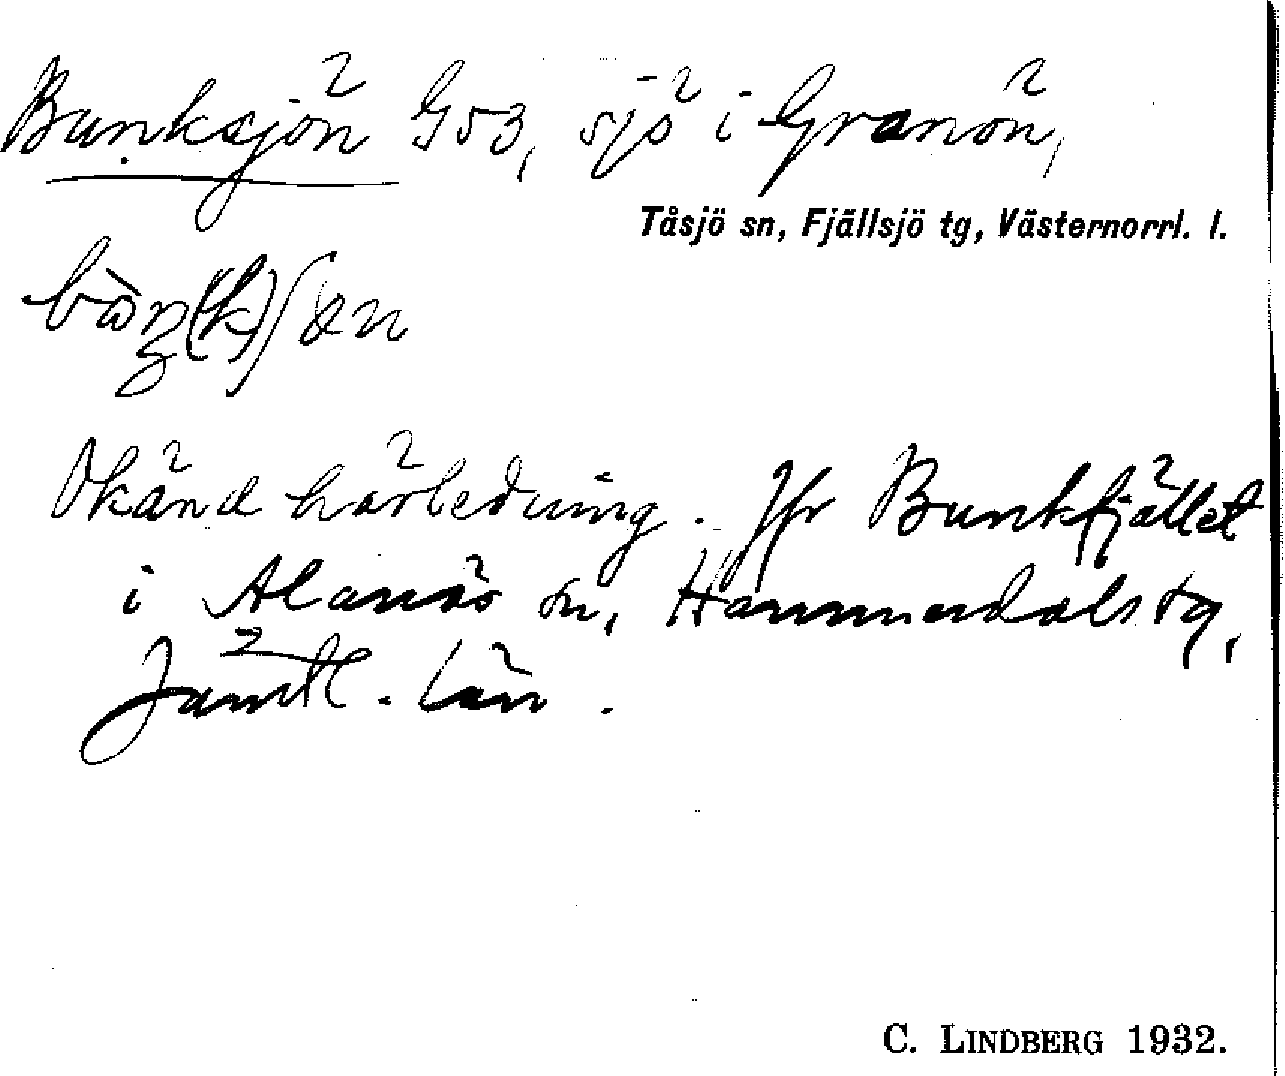 Bunksjön G53, sjö i Granön,
Tåsjö sn, Fjällsjö tg, Västernorrl. l.
bὼŋ(k)ʃən
Okänd härledning. Jfr Bunkfjället
i Alanäs sn, Hammerdals tg,
Jämtl. län.
C. LINDBERG 1932.